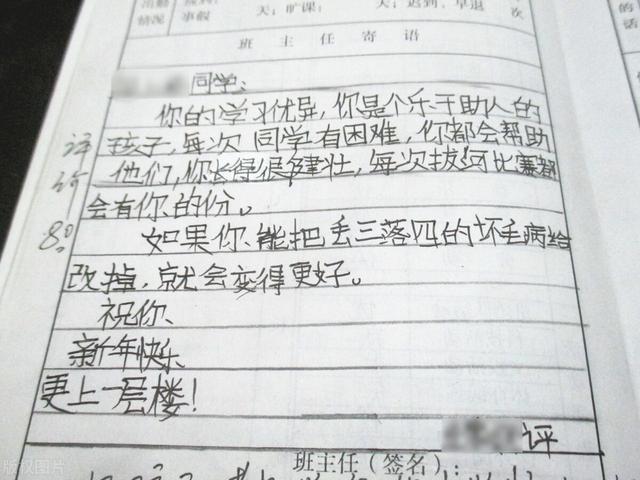 情况 事假 天；旷课： 天；迟到、早退 次
班主任寄语
同学：
你的学习优异，你是个乐于助人的
孩子，每次同学有困难，你都会帮助
他们，你长得很健壮，每次拔河比赛都
会有你的份。
如果你能把丢三落四的坏毛病给
改掉，就会变得更好。
祝你、
新年快乐
更上一层楼！
评
评价
80
班主任（签名）：
版权图片